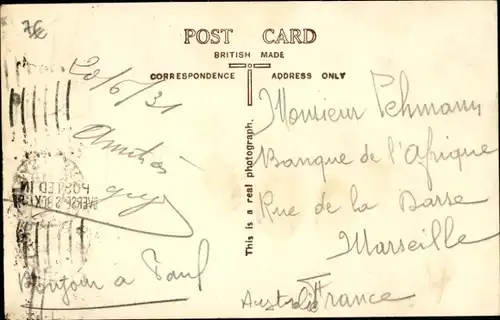 POST CARD
BRITISH MADE
CORRESPONDENCE
ADDRESS ONLY
This is a real photograph.
20/6/31
Amitiés
guy
Bonjour a Paul
Monsieur Pehmann
Banque de l'Afrique
Rue de la Darse
Marseille
France
POSTED IN